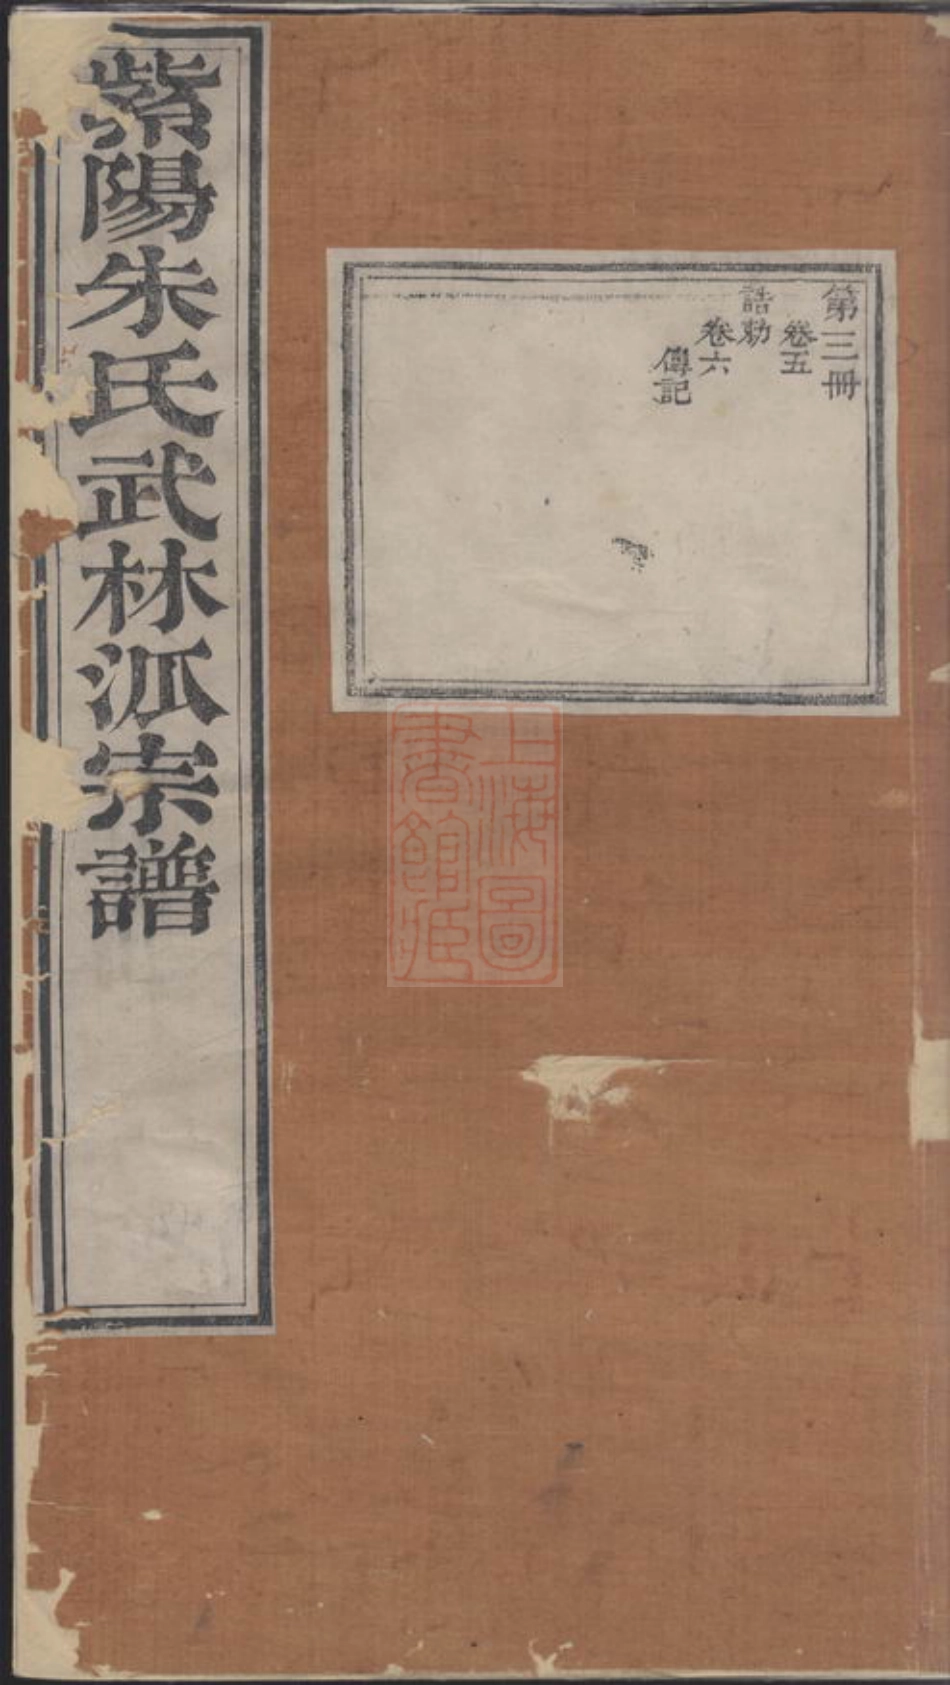 第三冊
卷五
誥勅
卷六
傳記
紫陽朱氏武林派宗譜
上海圖
書館藏